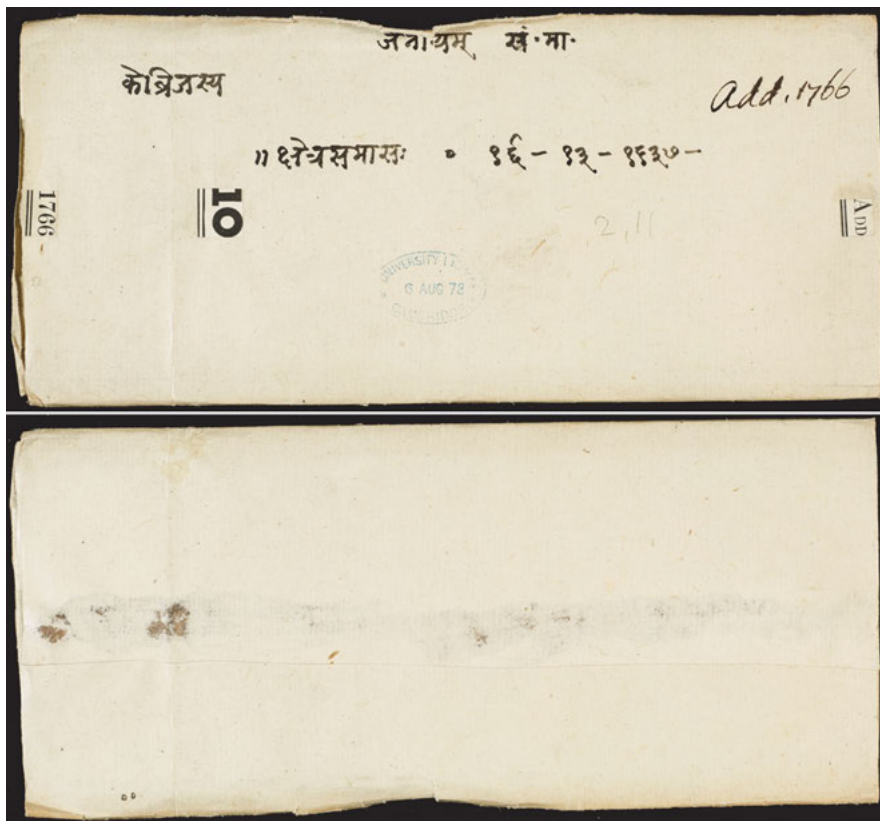 जनायम् सं॰मा॰
केंब्रिजस्य
Add. 1766
॥ क्षेत्रसमासः ॰ १६ - १३ - १६३७ -
1766
10
ADD
2,11
UNIVERSITY
6 AUG 78